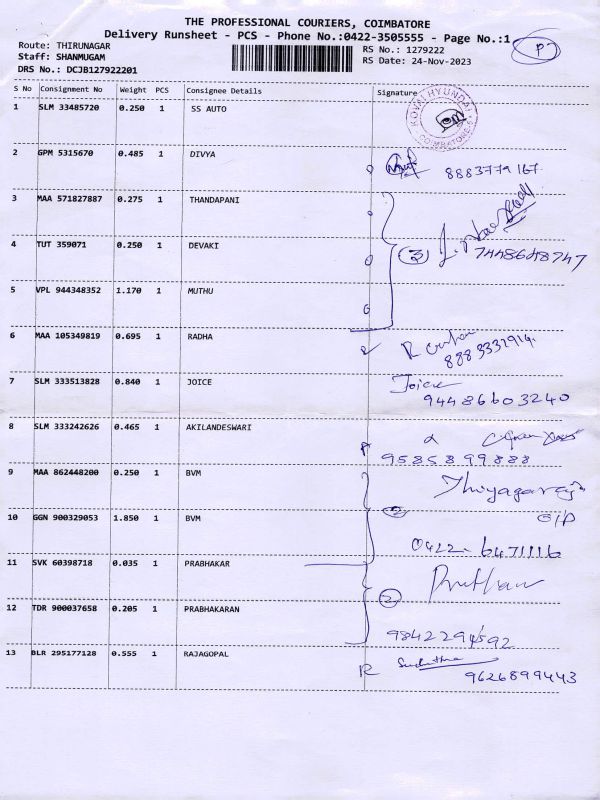 THE PROFESSIONAL COURIERS, COIMBATORE
Delivery Runsheet - PCS - Phone No.:0422-3505555 - Page No.:1
P
Route: THIRUNAGAR
RS No.: 1279222
Staff: SHANMUGAM
RS Date: 24-Nov-2023
DRS No.: DCJB127922201
S No Consignment No Weight PCS Consignee Details Signature
KOVAI HYUNDAI
COIMBATORE
1 SLM 33485720 0.250 1 SS AUTO
2 GPM 5315670 0.485 1 DIVYA
8883779167.
3 MAA 571827887 0.275 1 THANDAPANI
4 TUT 359071 0.250 1 DEVAKI
3 7448648747
5 VPL 944348352 1.170 1 MUTHU
6 MAA 105349819 0.695 1 RADHA
R
8883332914.
7 SLM 333513828 0.840 1 JOICE
Joice
94486603240
8 SLM 333242626 0.465 1 AKILANDESWARI
9585899888
9 MAA 862448200 0.250 1 BVM
Thiyagaraj
10 GGN 900329053 1.850 1 BVM
2
0422-6471116
11 SVK 60398718 0.035 1 PRABHAKAR
12 TDR 900037658 0.205 1 PRABHAKARAN
2
9842294592
13 BLR 295177128 0.555 1 RAJAGOPAL
R
9626899443